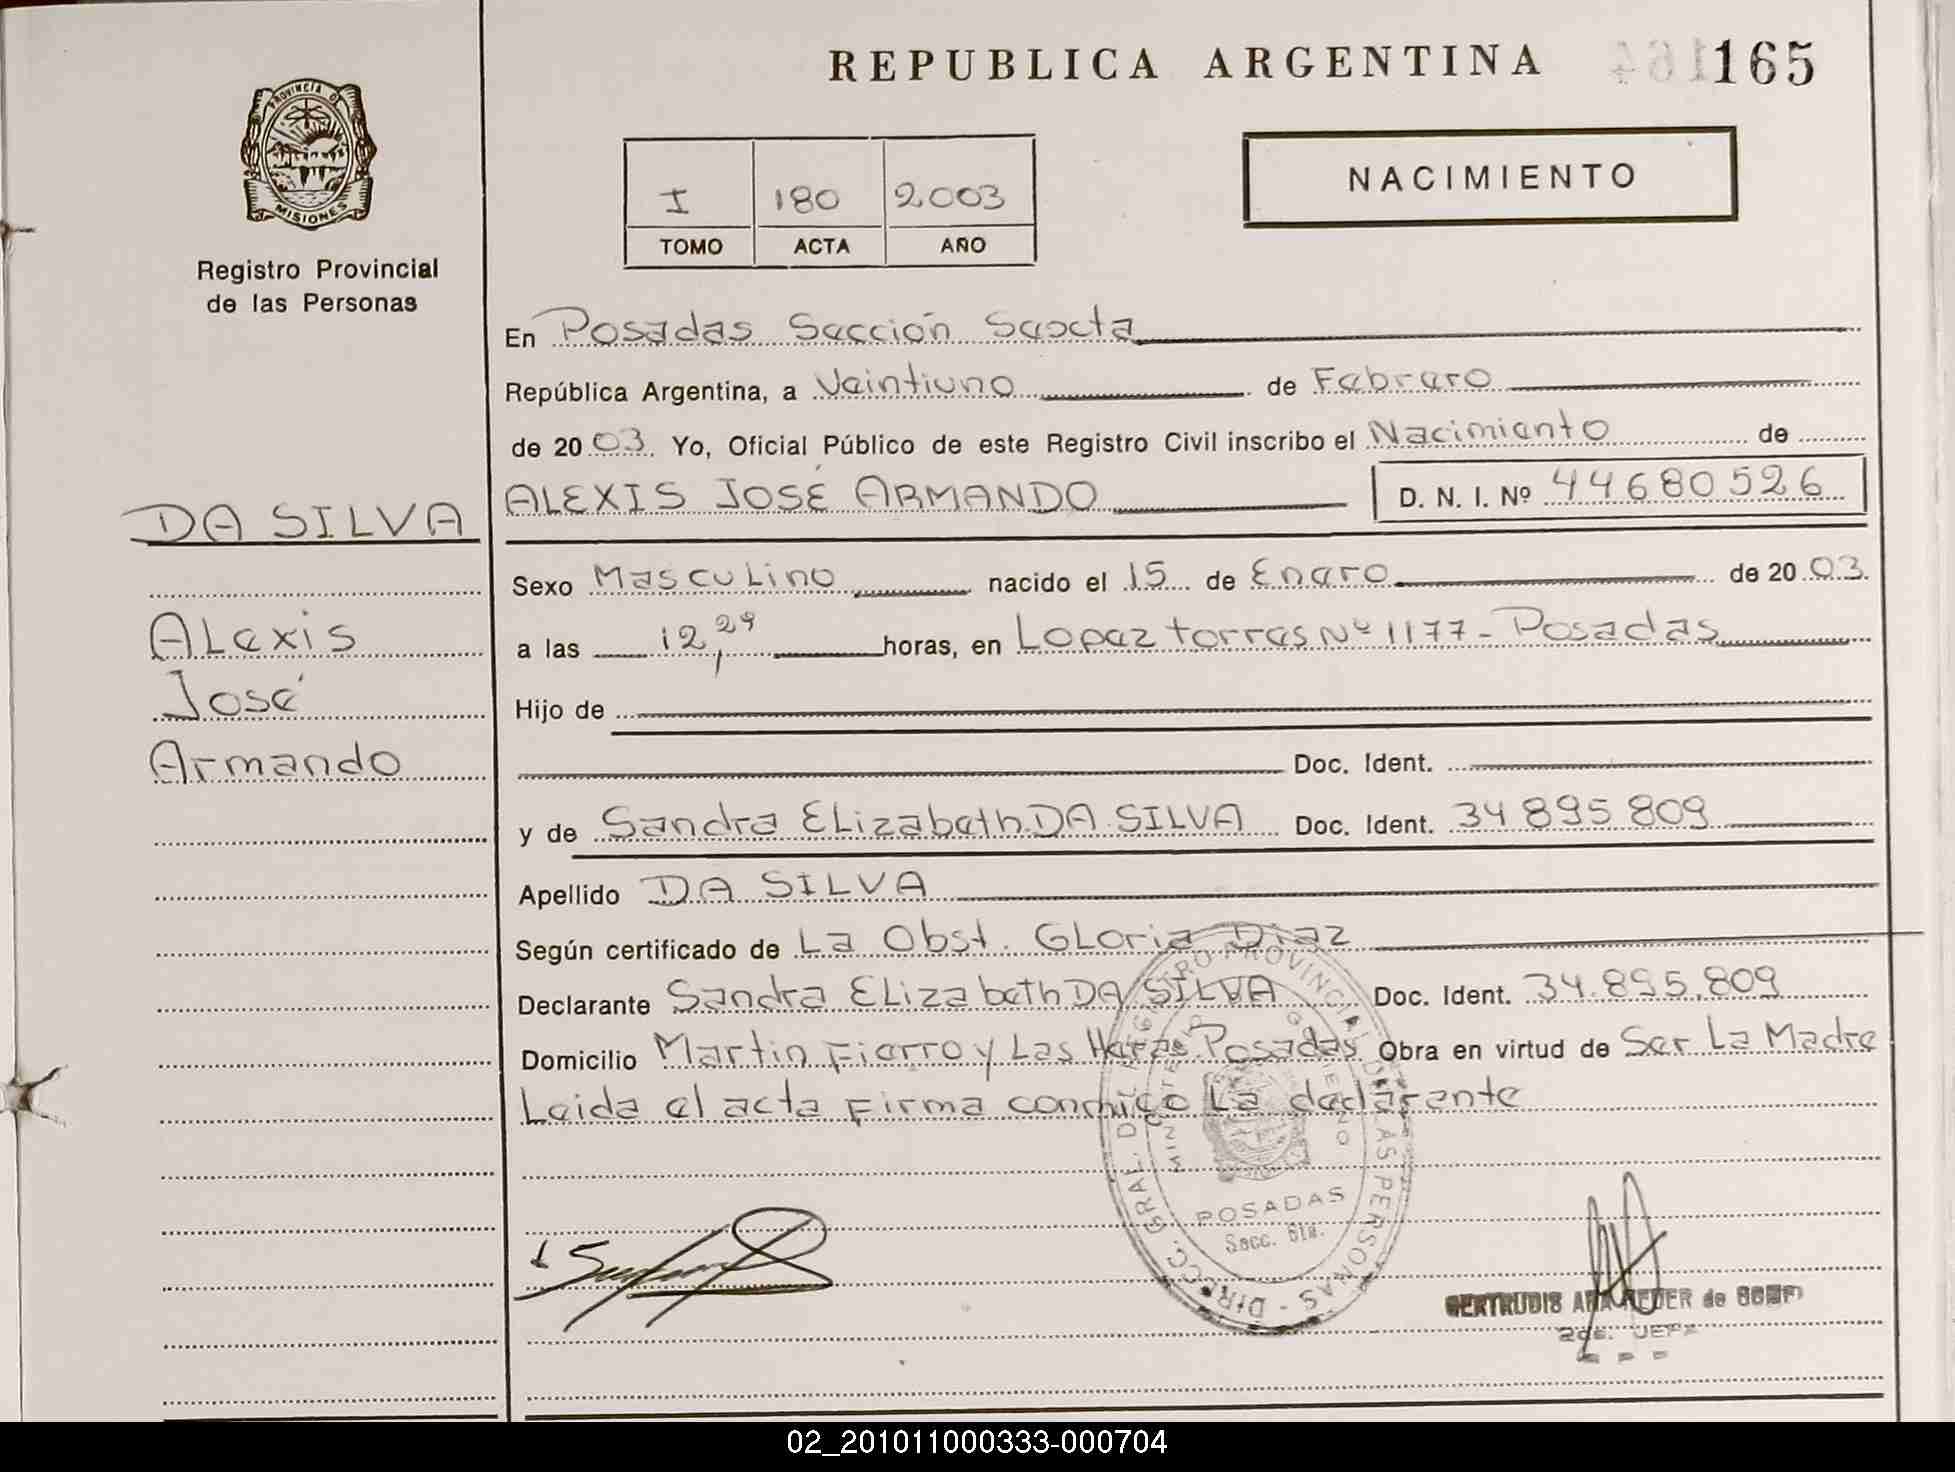 REPUBLICA ARGENTINA 165
PROVINCIA DE
MISIONES
Registro Provincial
de las Personas
I 180 2003
TOMO ACTA AÑO
NACIMIENTO
En Posadas Sección Sexta
República Argentina, a Veintiuno de Febrero
de 2003. Yo, Oficial Público de este Registro Civil inscribo el Nacimiento de
DA SILVA
ALEXIS JOSÉ ARMANDO D. N. I. Nº 44680526
Sexo Masculino nacido el 15 de Enero de 2003.
Alexis
a las 12,29 horas, en Lopez torres Nº 1177 - Posadas
José
Hijo de
Armando
Doc. Ident.
y de Sandra Elizabeth DA SILVA Doc. Ident. 34 895 809
Apellido DA SILVA
Según certificado de La Obst. Gloria Diaz
Declarante Sandra Elizabeth DA SILVA Doc. Ident. 34.895.809
Domicilio Martin Fierro y Las Heras Posadas Obra en virtud de Ser La Madre
Leida el acta Firma conmigo La declarente
DIRECC. GRAL. DE REGISTRO PROVINCIAL DE LAS PERSONAS
MINISTERIO GOBIERNO
POSADAS
Secc. 6ta.
GERTRUDIS ANA REDER de
2da. JEFA
02_201011000333-000704